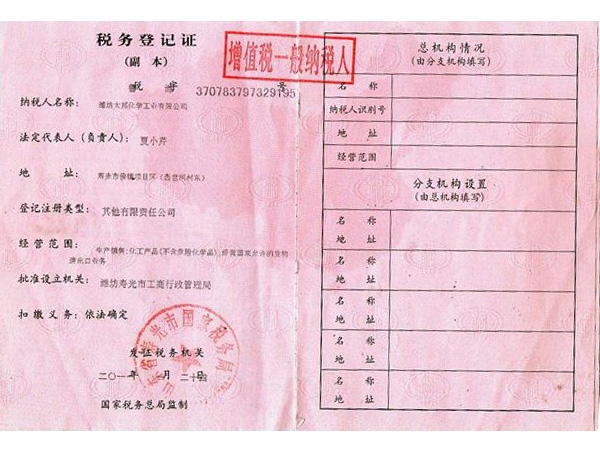 税务登记证
(副 本)
增值税一般纳税人
税 字 370783797329195 号
纳税人名称： 潍坊大邦化学工业有限公司
法定代表人（负责人）： 夏小芹
地 址：
登记注册类型： 其他有限责任公司
经营范围： 生产销售:化工产品(不含危险化学品);经营国家允许的货物
进出口业务
批准设立机关： 潍坊寿光市工商行政管理局
扣缴义务：依法确定
发证税务机关
月 二十四 日
国家税务总局监制
总机构情况
(由分支机构填写)
名 称
纳税人识别号
地 址
经营范围
分支机构设置
(由总机构填写)
名 称
地 址
名 称
地 址
名 称
地 址
名 称
地 址
名 称
地 址